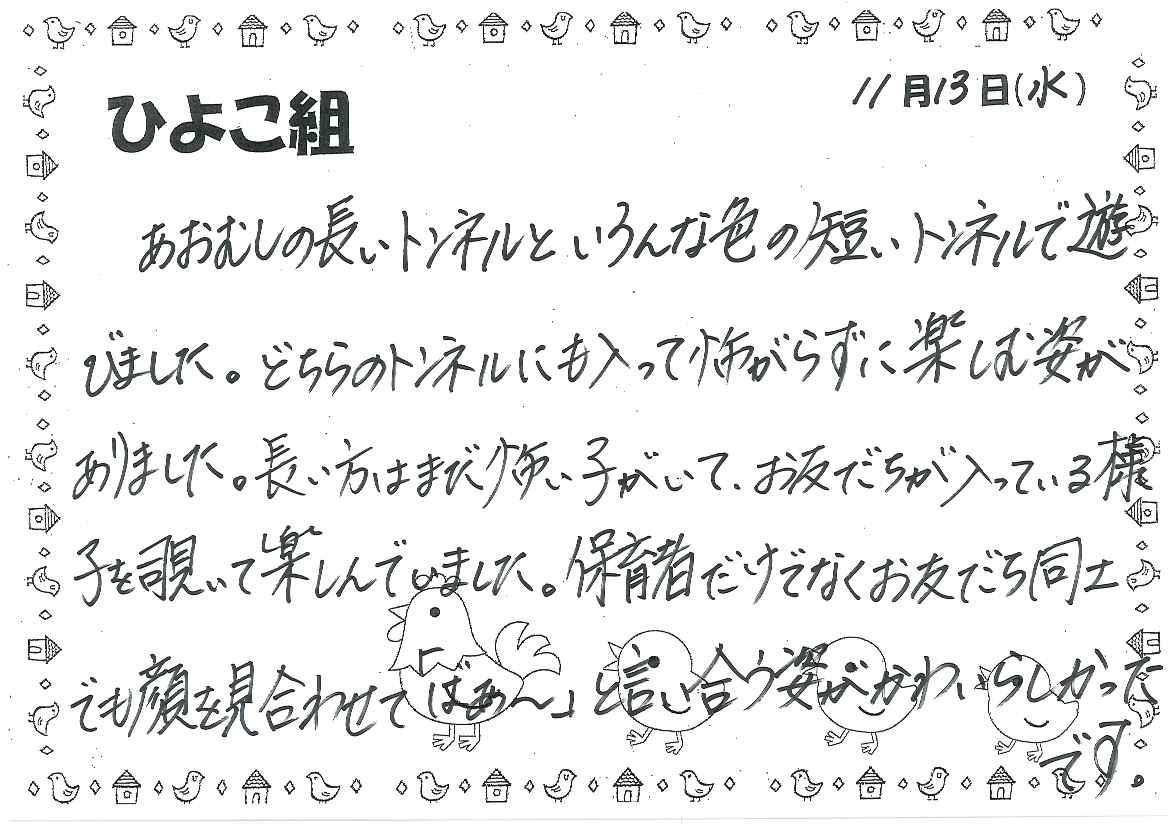 11月13日(水)
ひよこ組
あおむしの長いトンネルといろんな色の短いトンネルで遊
びました。どちらのトンネルにも入って怖がらずに楽しむ姿が
ありました。長い方はまだ怖い子がいて、お友だちが入っている様
子を覗いて楽しんでいました。保育者だけでなくお友だち同士
でも顔を見合わせて「ばぁ〜」と言い合う姿がかわいらしかった
です。